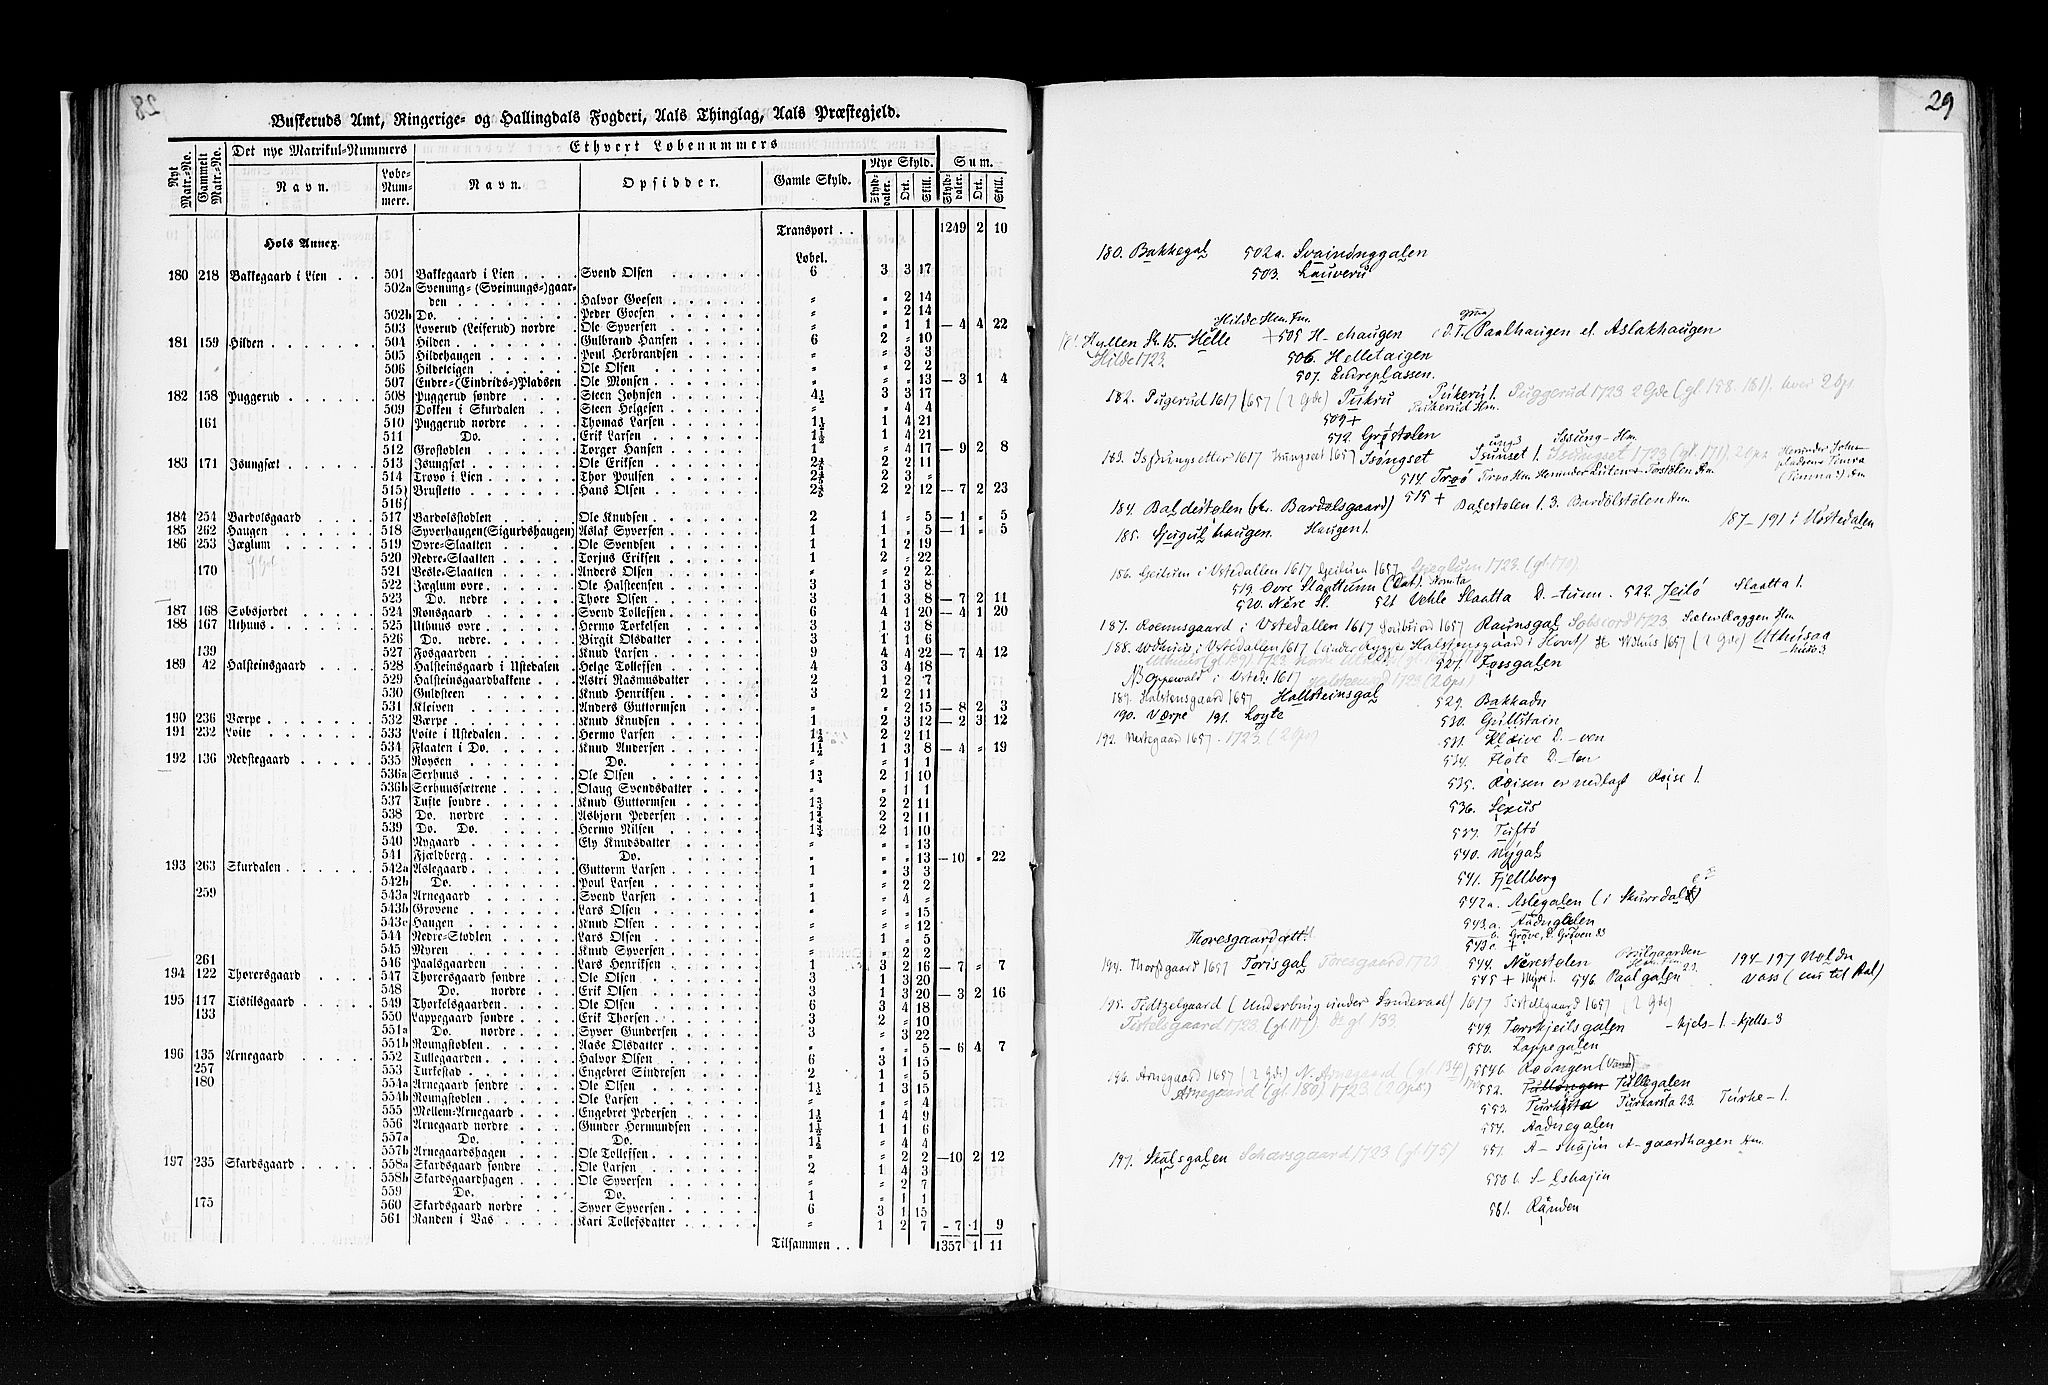 28
Buskeruds Amt, Ringerige- og Hallingdals Fogderi, Aals Thinglag, Aals Præstegjeld.
Nyt Matr.-No. Gammelt Matr.-No. Det nye Matrikul-Nummers Ethvert Løbenummers
Navn. Løbe-Nummere. Navn. Opsidder. Gamle Skyld. Nye Skyld. Sum.
Skylddaler. Ort. Skill. Skylddaler. Ort. Skill.
Hols Annex. Transport . . 1249 2 10
Løbel.
180 218 Bakkegaard i Lien . . . 501 Bakkegaard i Lien . . . Svend Olsen 6 3 3 17
502a Svenung- (Sveinungs-)gaar-
den Halvor Goesen " " 2 14
502b Do. Peder Goesen " " 2 14
503 Loverud (Leiferud) nordre Ole Syversen " " 1 1 — 4 4 22
181 159 Hilden 504 Hilden Gulbrand Hansen 6 2 " 10
505 Hildehaugen Poul Herbrandsen " " 3 3
506 Hildeteigen Ole Olsen " " 2 2
507 Endre-(Eindrids-)Pladsen Ole Monsen " " " 13 — 3 1 4
182 158 Puggerud 508 Puggerud søndre Steen Johnsen 4½ 3 3 17
509 Dokken i Skurdalen Steen Helgesen " " 4 4
161 510 Puggerud nordre Thomas Larsen 1½ 1 4 21
511 Do. Erik Larsen 1½ 1 4 21
512 Grøstølen Torger Hansen 1 " 4 17 — 9 2 8
183 171 Isungsæt 513 Isungsæt Ole Eriksen 2 2 11
514 Trovo i Lien Thor Poulsen 2 3 "
515 Brusletto Hans Olsen 2 2 12 — 7 2 23
516
184 254 Bardolsgaard 517 Bardolsstølen Ole Knudsen 2 1 " 5 — 1 " 5
185 262 Haugen 518 Syverhaugen (Sigurdshaugen) Aslak Syversen 1 1 " 5 — 1 " 5
186 253 Jæglum 519 Øvre-Slaatten Ole Svendsen 1 1 2 19
520 Nedre-Slaatten Torjus Eriksen 1 2 " 22
170 521 Vesle-Slaatten Anders Olsen " " 2 2
522 Jæglum øvre Ole Halsteensen 3 1 3 8
523 Do. nedre Thore Olsen 3 1 3 8 — 7 2 11
187 168 Søbsjordet 524 Rønsgaard Svend Tollefsen 6 4 1 20 — 4 1 20
188 167 Uthuus 525 Uthuus øvre Hermo Torkelsen 3 1 3 8
526 Do. nedre Birgit Olsdatter 1 1 6
139 527 Fosgaarden Knud Larsen 4 4 22 — 7 4 12
189 42 Halsteinsgaard 528 Halsteinsgaard i Ustedalen Helge Tollefsen 4 3 4 18
529 Halsteinsgaardbakkene Astri Rasmusdatter 2 1 2 7
530 Guldsteen Knud Henriksen 3 2 2 11
531 Kleiven Anders Guttormsen " " 2 15 — 8 2 3
190 236 Værpe 532 Værpe Knud Knudsen 1 2 3 12 — 2 3 12
191 232 Loite 533 Loite i Ustedalen Hermo Larsen 1½ 2 2 11
534 Flaaten i Do. Knud Andersen 1½ 1 3 8 — 4 " 19
192 136 Nedstegaard 535 Røysen Do. " " 1 1
536a Serhuus Ole Olsen 2 1 10
536b Serhuussætrene Olaug Svendsdatter " " 1 1
537 Tufte søndre Knud Guttormsen 2 2 11
538 Do. nordre Asbjørn Pedersen 2 2 11
539 Do. Do. Hermo Nilsen 2 1 10
540 Nygaard Ely Knudsdatter " " " 13
541 Fjældberg Do. " " " 13 — 10 " 22
193 263 Skurdalen 542a Aslegaard Guttorm Larsen 1 " 3 3
542b Do. Poul Larsen " " 2 2
259 543a Arnegaard Svend Larsen 1 " 4 "
543b Grovene Lars Olsen " " " 15
543c Haugen Knud Olsen " " " 12
544 Nedre-Stølen Lars Olsen " 1 " 5
545 Myren Knud Syversen " " 2 2
261 546 Paalsgaarden Lars Henriksen 1 3 2 16 — 7 " 7
194 122 Thorersgaard 547 Thorersgaard søndre Ole Olsen 3 1 3 20
548 Do. nordre Erik Olsen 3 1 3 20 — 3 2 16
195 117 Tistilsgaard 549 Thorkelsgaarden Ole Olsen 6 3 4 18
133 550 Lappegaard søndre Erik Thorsen 3 2 " 10
551a Do. nordre Syver Gundersen 3 " 3 22
551b Roungstølen Aase Olsdatter " " " 5 — 6 4 7
196 135 Arnegaard 552 Tullegaarden Halvor Olsen 6 3 1 15
257 553 Turkestad Engebret Sindresen 2 1 " 5
180 554a Arnegaard søndre Ole Olsen 1½ 1 3 15
554b Roungstølen Ole Larsen " " " 4
555 Mellem-Arnegaard Engebret Pedersen 1½ 1 4 9
556 Arnegaard nordre Gunder Hermundsen 1½ 1 1 6
557a Do. Do. 1½ " 4 4
557b Arnegaardshagen Ole Tollefsen " " 2 2 — 10 2 12
197 235 Skardsgaard 558a Skardsgaard søndre Ole Larsen 2 1 4 3
558b Skardsgaardhagen Ole Syversen " " 2 7
559 Do. Do. 1 " 1 1
175 560 Skardsgaard nordre Syver Syversen 6 3 1 15
561 Randen i Vas Kari Tollefsdatter " 1 2 7 — 7 1 9
Tilsammen . . 1357 1 11
29
180. Bakkegal 502a. Svainónggalen
503. Lauveru
Hilde Hm. Fm.
Hyllen St. 15. Helle +505 H-ehaugen (d.T. Paalhaugen el. Aslakhaugen
Hilde 1723. 506. Helletaigen
507. Endreplassen.
182. Pugerud 1617 1657 (2 Gde) Pukru Pukeru 1. Puggerud 1723 2 Gde (gl. 158. 181). hver 2 Gps.
Pukerud Hm.
509+
512. Grøstølen
183. 1617 1657 Isóngset Isunset 1. Isongset 1723 (gl. 171). 2 Gps
514. Troó
515 +
184. Baldestølen (sk. Bardolsgaard) Balestølen 1. 3. Bardølstølen Hm.
187–191 i Ustedalen
185. haugen. Haugen 1.
186. Geilum i Ustedallen 1617 Geilum 1657 1723. (gl. 170).
519. Øvre Slaattumm (Dat.)
520. Nere Sl. 521 Vehle Slaatta D. -tumm. 522. Jeiló Slaatta 1.
187. i Ustedallen 1617 1657 Raunsgal 1723
188. i Ustedalen 1617 1657 (2 Gde)
527. Fossgalen
NB Oppewald i Usted. 1617 1723 (2 Gps)
189. Halstensgaard 1657 Hallsteinsgal 529. Bakkadn
190. Værpe 191. Loyte 530. Gullstain
192. Nestegaard 1657. 1723. (2 Gps) 531. Klaive D. -ven
534. Flote D. -ten
535. Røisen er nedlagt Røise 1.
536. Sexus
537. Tufto
540. Nygal
541. Fjellberg
542a. Aslegalen (i Skurrdal
543.a. Aadngalen
b. Grøve, D. Grøven 83
543c +
544. Nerestølen
194–197 Valdn
545 + Myri 1. 546. Paalgalen 23. Vass (ens til Aal)
194. Thorsgaard 1657 Torisgal Toresgaard 1723
195. Tidtzelgaard ( Underbrug under Sunderaal) 1617 Tistelsgaard 1657 (2 Gde)
Tistelsgaard 1723 (gl 117). og gl 133. 549. Torrkjeilsgalen -kjels- 1. -kjells- 3
550. Lappegalen
196. Arnegaard 1657 (2 Gde) N. Arnegaard (gl. 134)
Arnegaard (gl. 180) 1723. (2 Gps)
552. Tullegalen
553. Turkista Turkarsta 23. Turke- 1.
554. Aadnegalen
557. A- hajin A-gaardhagen Hm.
197. Skalsgalen Scharsgaard 1723 (gl 175)
550 b. S-lshajin
561. Randen